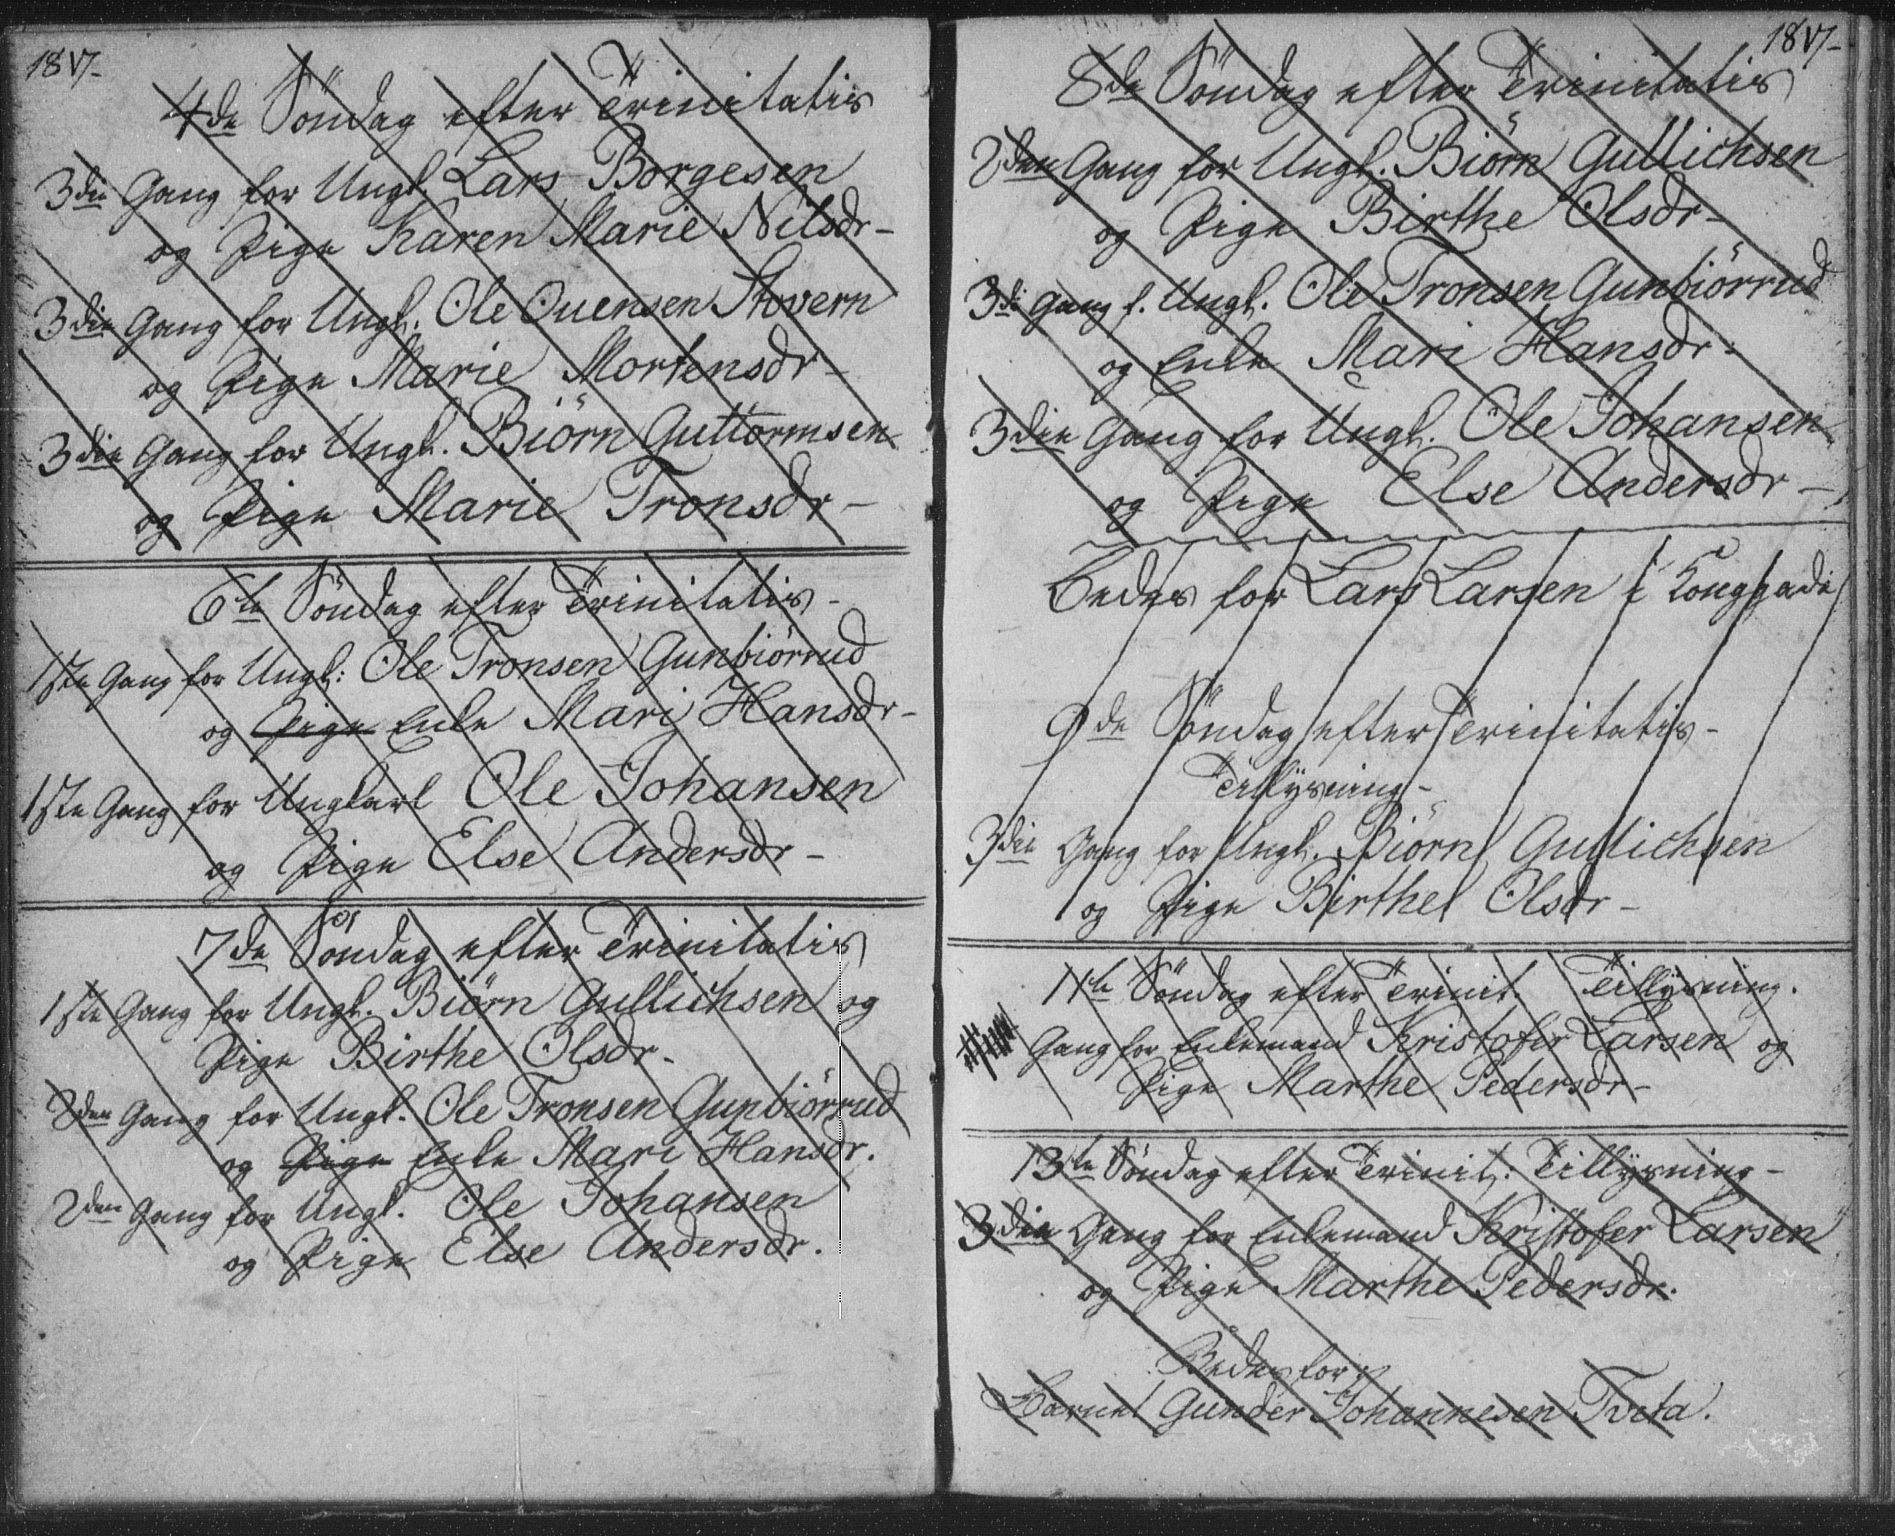 18
4de Söndag efter Trinitatis
3die Gang for Ungk. Lars Borgesen
og Pige Karen Marie Nilsdr-
3die Gang for Ungk. Ole Ouensen Stovern
og Pige Marie Mortensdr-
3die Gang for Ungk. Biörn Guttormsen
og Pige Marie Tronsdr-
6te Söndag efter Trinitatis-
1ste Gang for Ungk: Ole Tronsen Gunbiörrud
og Pige Enke Mari Hansdr-
1ste Gang for Ungkarl Ole Johansen
og Pige Else Andersdr-
7de Söndag efter Trinitatis
1ste Gang for Ungk. Biörn Gullichsen og
Pige Birthe Olsdr-
2den Gang for Ungk. Ole Tronsen Gunbiörrud
og Pige Enke Mari Hansdr.
2den Gang for Ungk. Ole Johansen
og Pige Else Andersdr.
18
8de Söndag efter Trinitatis
2den Gang for Ungk. Biörn Gullichsen
og Pige Birthe Olsdr-
3di Gang f. Ungk. Ole Tronsen Gunbiörrud
og Enke Mari Hansdr-
3die Gang for Ungk. Ole Johansen
og Pige Else Andersdr-
Bedes for Lars Larsen i
9de Söndag efter Trinitatis-
Tillysning-
3die Gang for Ungk. Biörn Gullichsen
og Pige Birthe Olsdr-
11te Söndag efter Trinit. Tillysning.
Gang for Enkemand Kristofer Larsen og
Pige Marthe Pedersdr-
13te Söndag efter Trinit: Tillysning-
3die Gang for Enkemand Kristofer Larsen
og Pige Marthe Pedersdr.
Bedes for
Barnet Gunder Johannesen Tveta.